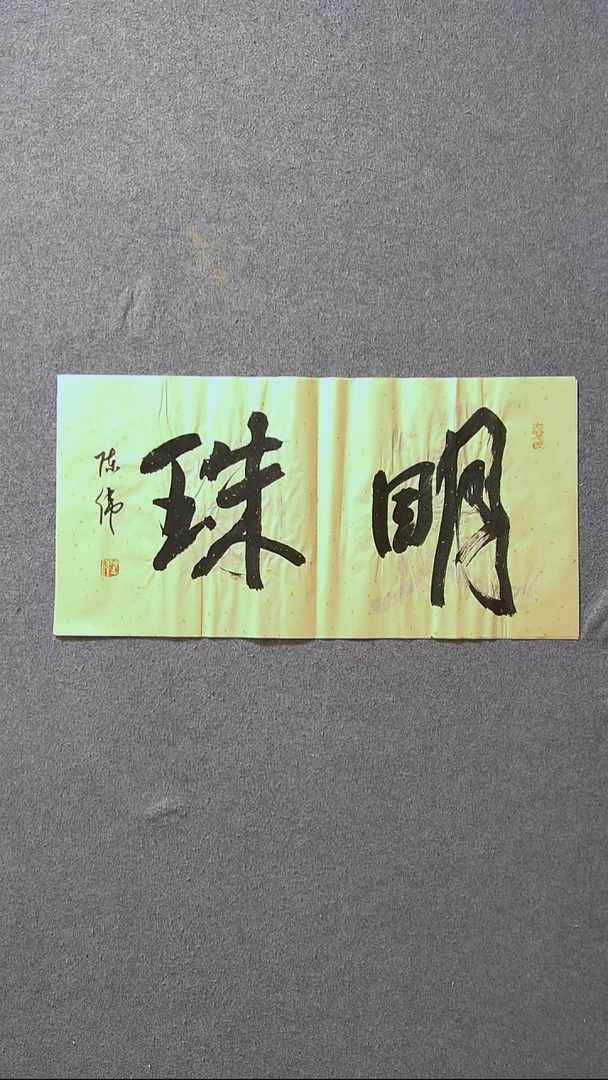 明珠
陈伟